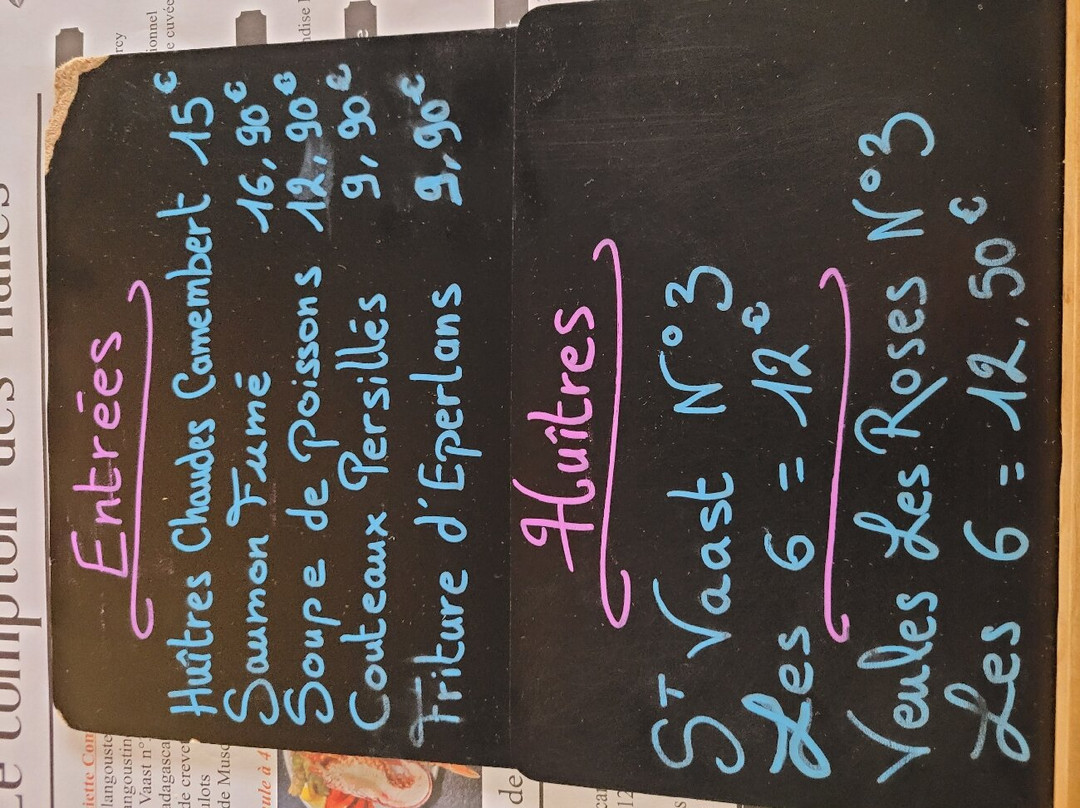 Entrées
Huîtres Chaudes Camembert 15€
Saumon Fumé 16,90€
Soupe de Poissons 12,90€
Couteaux Persillés 9,90€
Friture d'Eperlans 9,90€
Huîtres
ST Vaast N°3
Les 6 = 12€
Veules Les Roses N°3
Les 6 = 12,50€